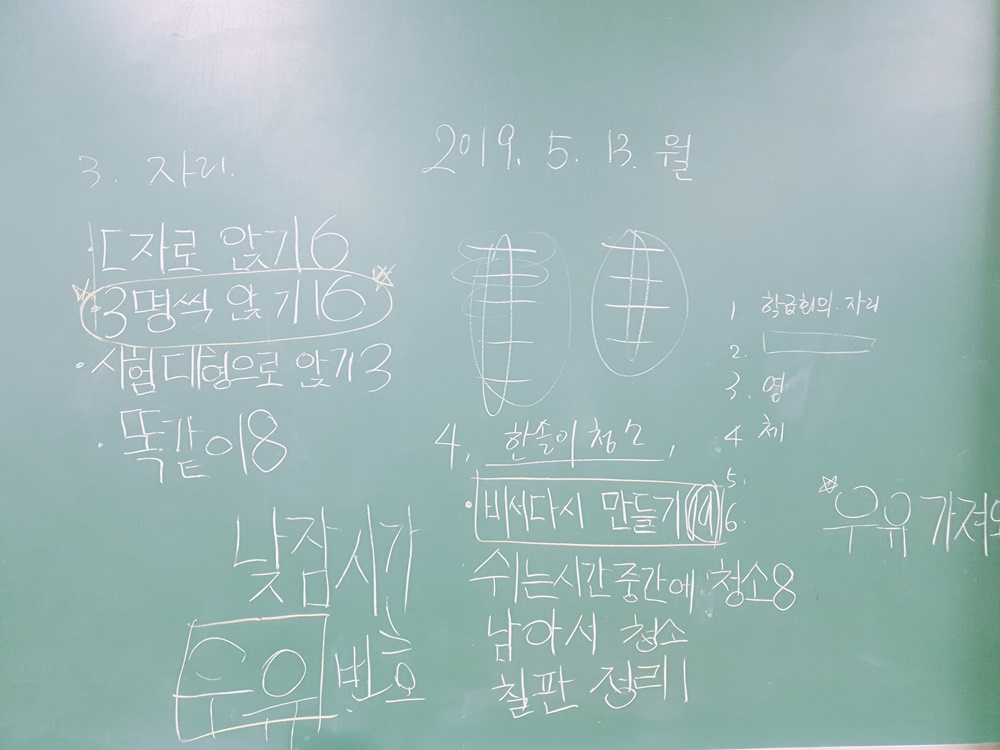 2019. 5. 13. 월
3. 자리.
ㄷ자로 앉기 6
3명씩 앉기 16
· 시험대형으로 앉기 3
· 똑같이 8
1. 학급회의. 자리
2.
3. 영
4 체
5.
6.
4. 한솔이 청소.
· 비서다시 만들기
쉬는시간 중간에 청소 8
남아서 청소
칠판 정리 1
우유 가져오
낮잠시가
우유 번호